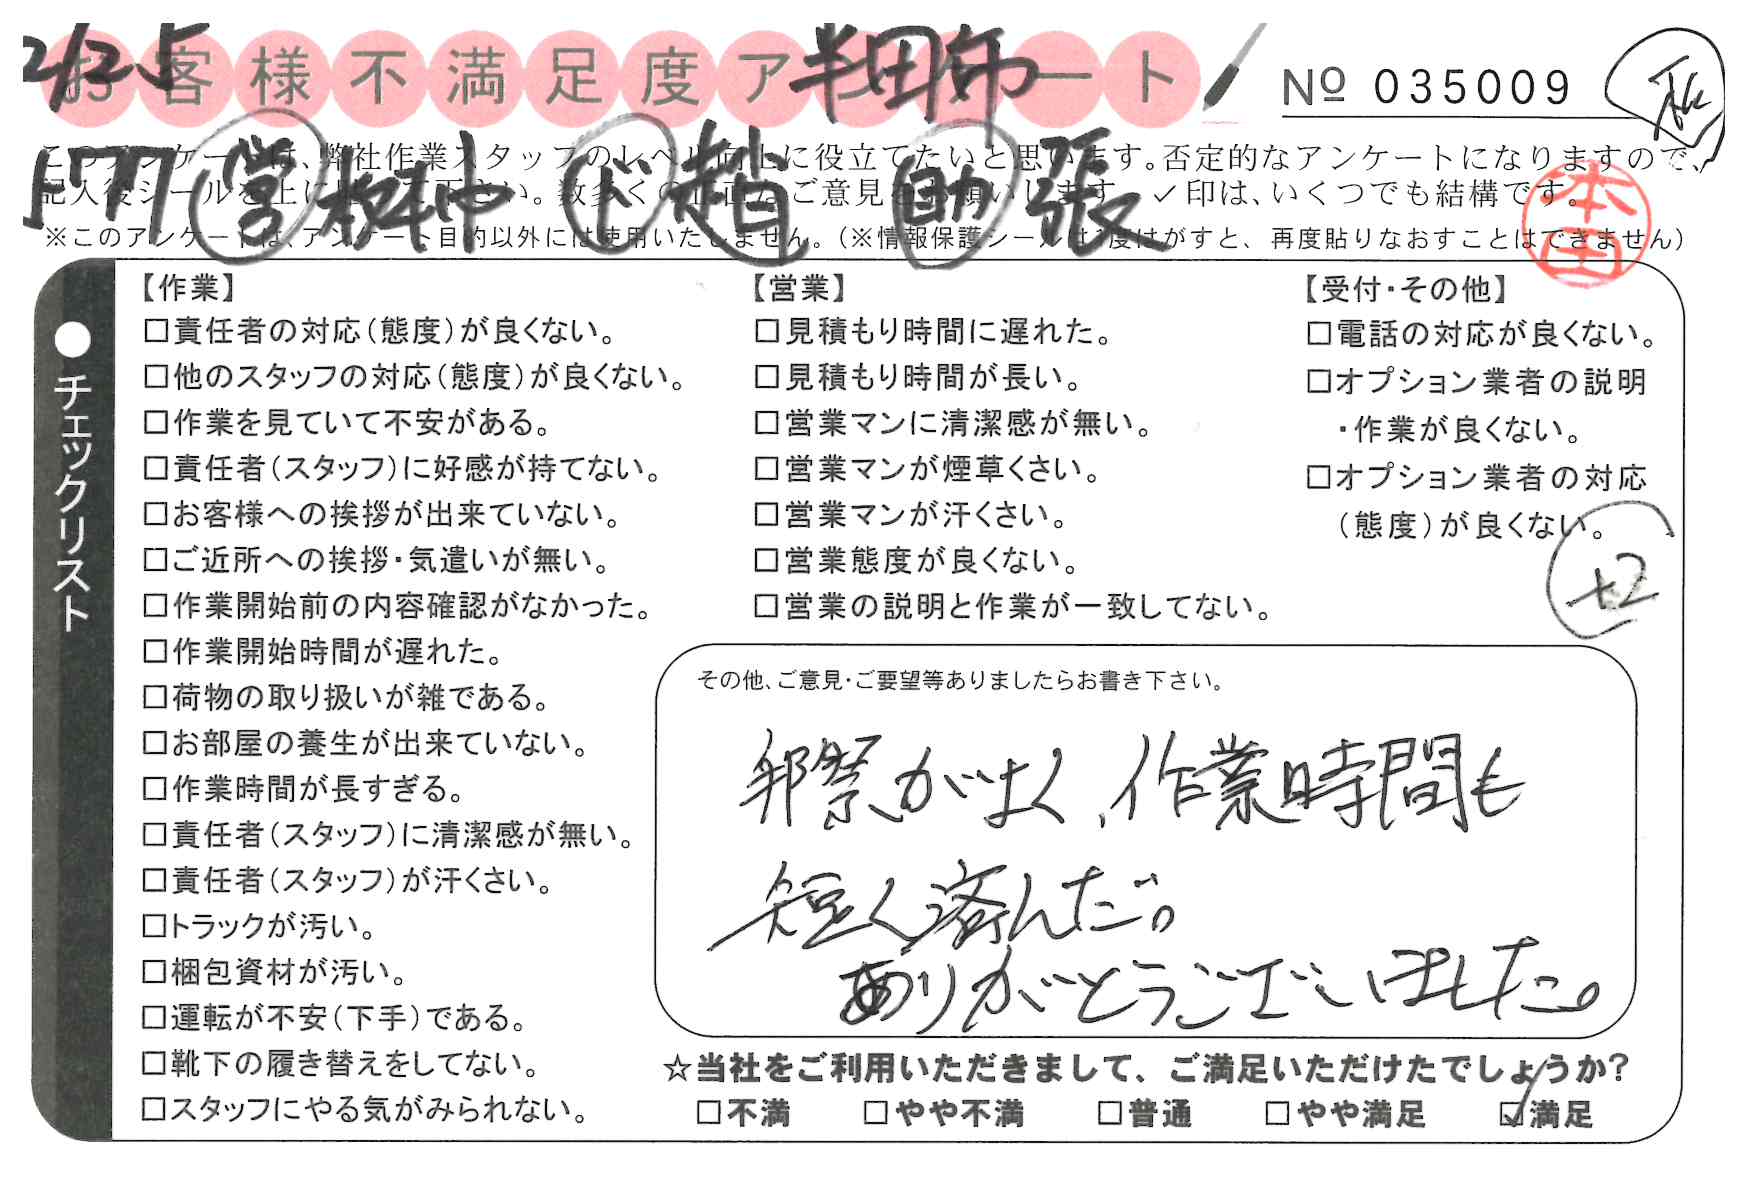 2/25 半田市
お客様不満足度アンケート
№ 035009
このアンケートは、弊社作業スタッフのレベル向上に役立てたいと思います。否定的なアンケートになりますので、
記入後シールを上に貼って下さい。数多くの正直なご意見をお願いします。✓印は、いくつでも結構です。
営 ド 趙 助 張
本田
※このアンケートは、アンケート目的以外には使用いたしません。（※情報保護シールは1度はがすと、再度貼りなおすことはできません）
●チェックリスト
【作業】
□責任者の対応（態度）が良くない。
□他のスタッフの対応（態度）が良くない。
□作業を見ていて不安がある。
□責任者（スタッフ）に好感が持てない。
□お客様への挨拶が出来ていない。
□ご近所への挨拶・気遣いが無い。
□作業開始前の内容確認がなかった。
□作業開始時間が遅れた。
□荷物の取り扱いが雑である。
□お部屋の養生が出来ていない。
□作業時間が長すぎる。
□責任者（スタッフ）に清潔感が無い。
□責任者（スタッフ）が汗くさい。
□トラックが汚い。
□梱包資材が汚い。
□運転が不安（下手）である。
□靴下の履き替えをしてない。
□スタッフにやる気がみられない。
【営業】
□見積もり時間に遅れた。
□見積もり時間が長い。
□営業マンに清潔感が無い。
□営業マンが煙草くさい。
□営業マンが汗くさい。
□営業態度が良くない。
□営業の説明と作業が一致してない。
【受付・その他】
□電話の対応が良くない。
□オプション業者の説明
・作業が良くない。
□オプション業者の対応
（態度）が良くない。
+2
その他、ご意見・ご要望等ありましたらお書き下さい。
がよく、作業時間も
短く済んだ。
ありがとうございました。
☆当社をご利用いただきまして、ご満足いただけたでしょうか？
□不満 □やや不満 □普通 □やや満足 ☑満足